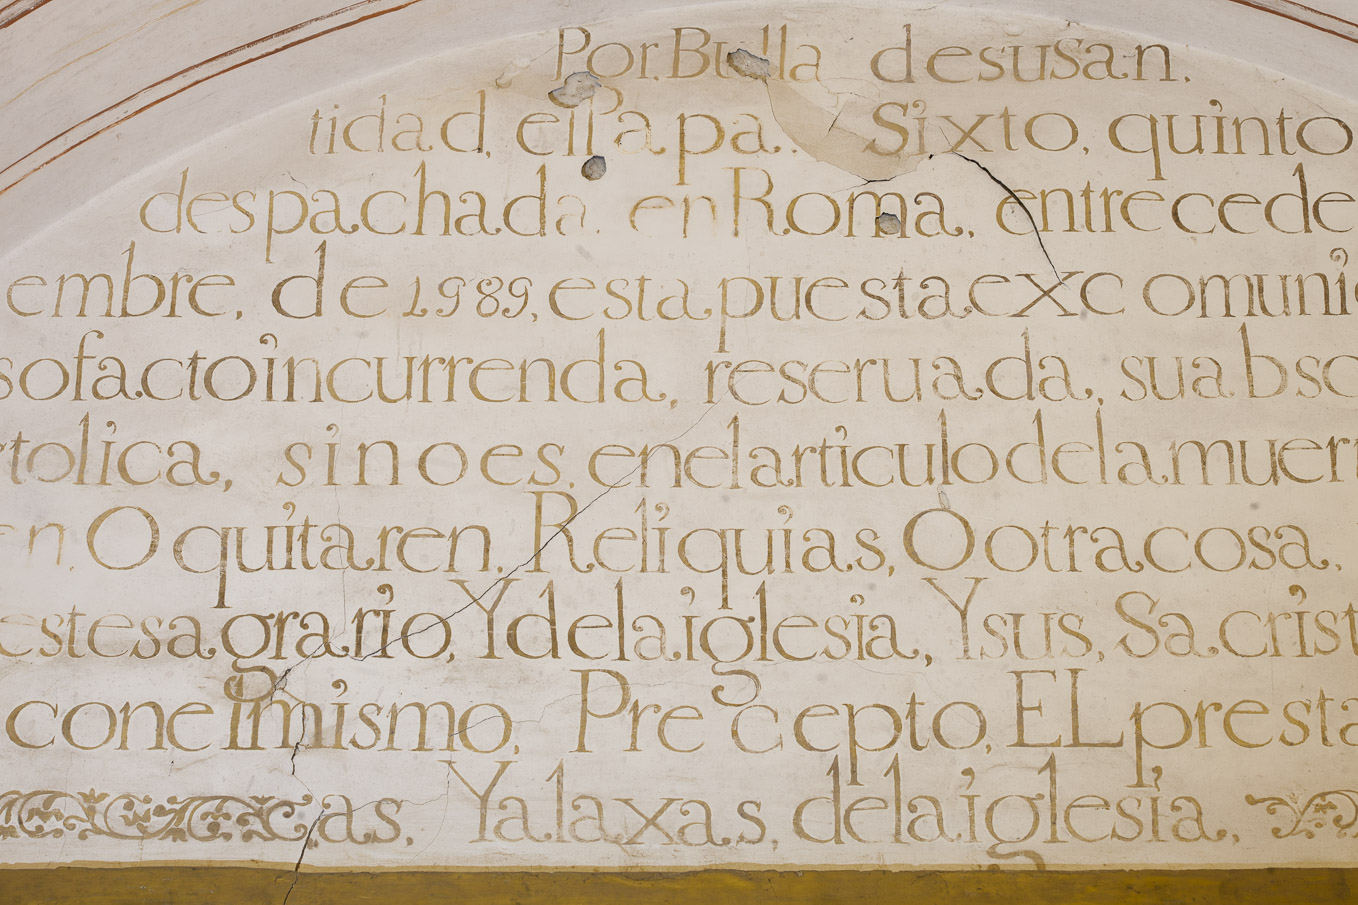 Por. Bulla desusan.
tidad, ell Papa. Sixto, quinto
despachada. en Roma, entrecede
embre, de 1989, esta puesta exc omuni
sofacto incurrenda, reseruada, suabso
tolica, sinoes. enelarticulo dela muer
en, O quitaren, Reliquias, O otra cosa,
estesagrario, Y dela iglesia, Y sus, Sa.crist
conelmismo, Pre cepto, EL presta
cas, Y alaxas, dela iglesia,